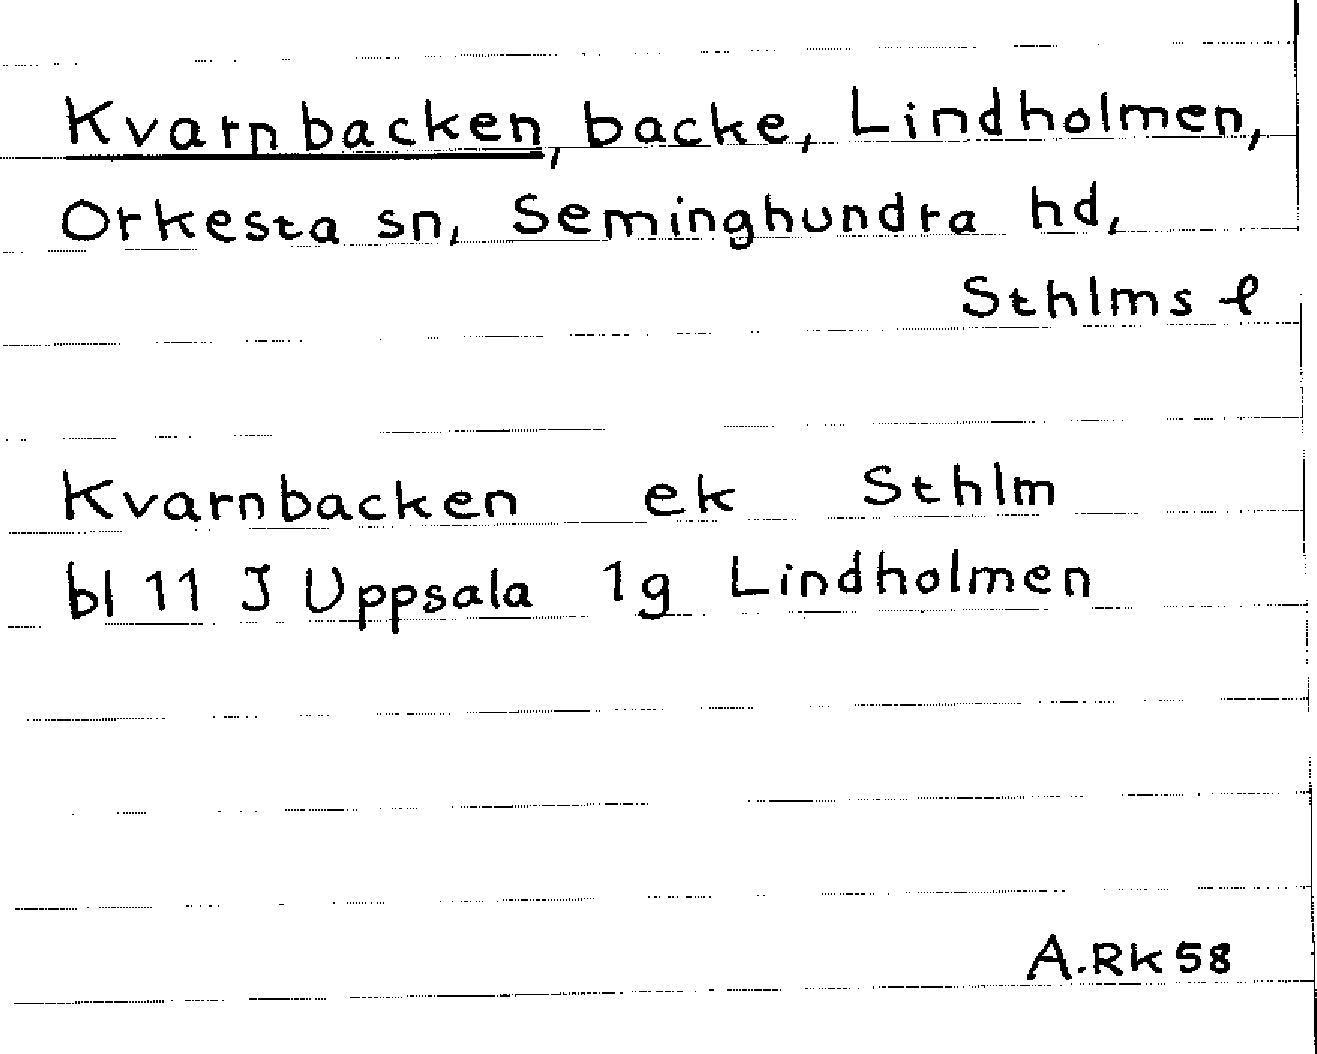 Kvarnbacken, backe, Lindholmen,
Orkesta sn, Seminghundra hd,
Sthlms l
Kvarnbacken ek Sthlm
bl 11 J Uppsala 1g Lindholmen
A.RK58